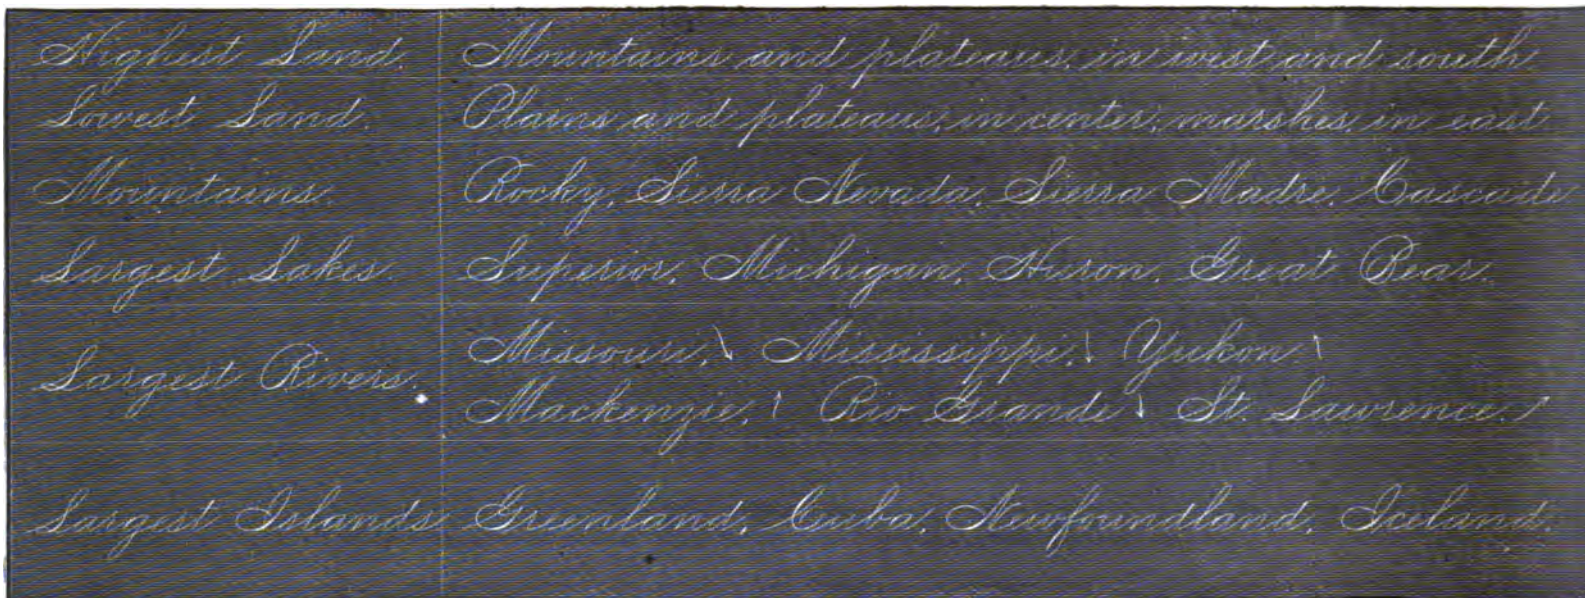 Highest Land. Mountains and plateaus, in west and south
Lowest Land. Plains and plateaus, in center; marshes, in east
Mountains. Rocky, Sierra Nevada, Sierra Madre, Cascade
Largest Lakes. Superior, Michigan, Huron, Great Bear.
Largest Rivers. Missouri, ↘ Mississippi, ↓ Yukon ↑
Mackenzie, ↑ Rio Grande ↓ St. Lawrence. ↗
Largest Islands Greenland, Cuba, Newfoundland, Iceland.